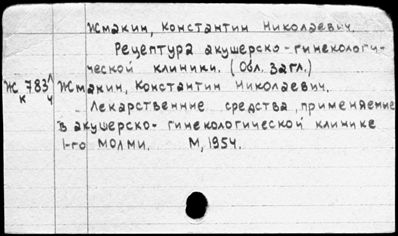 Жмакин, Константин Николаевич.
Рецептура акушерско-гинекологи-
ческой клиники. (Обл. загл.)
Ж 783 Л
к ч
Жмакин, Константин Николаевич.
Лекарственные средства, применяемые
в акушерско-гинекологической клинике
1-го МОЛМИ. М, 1954.